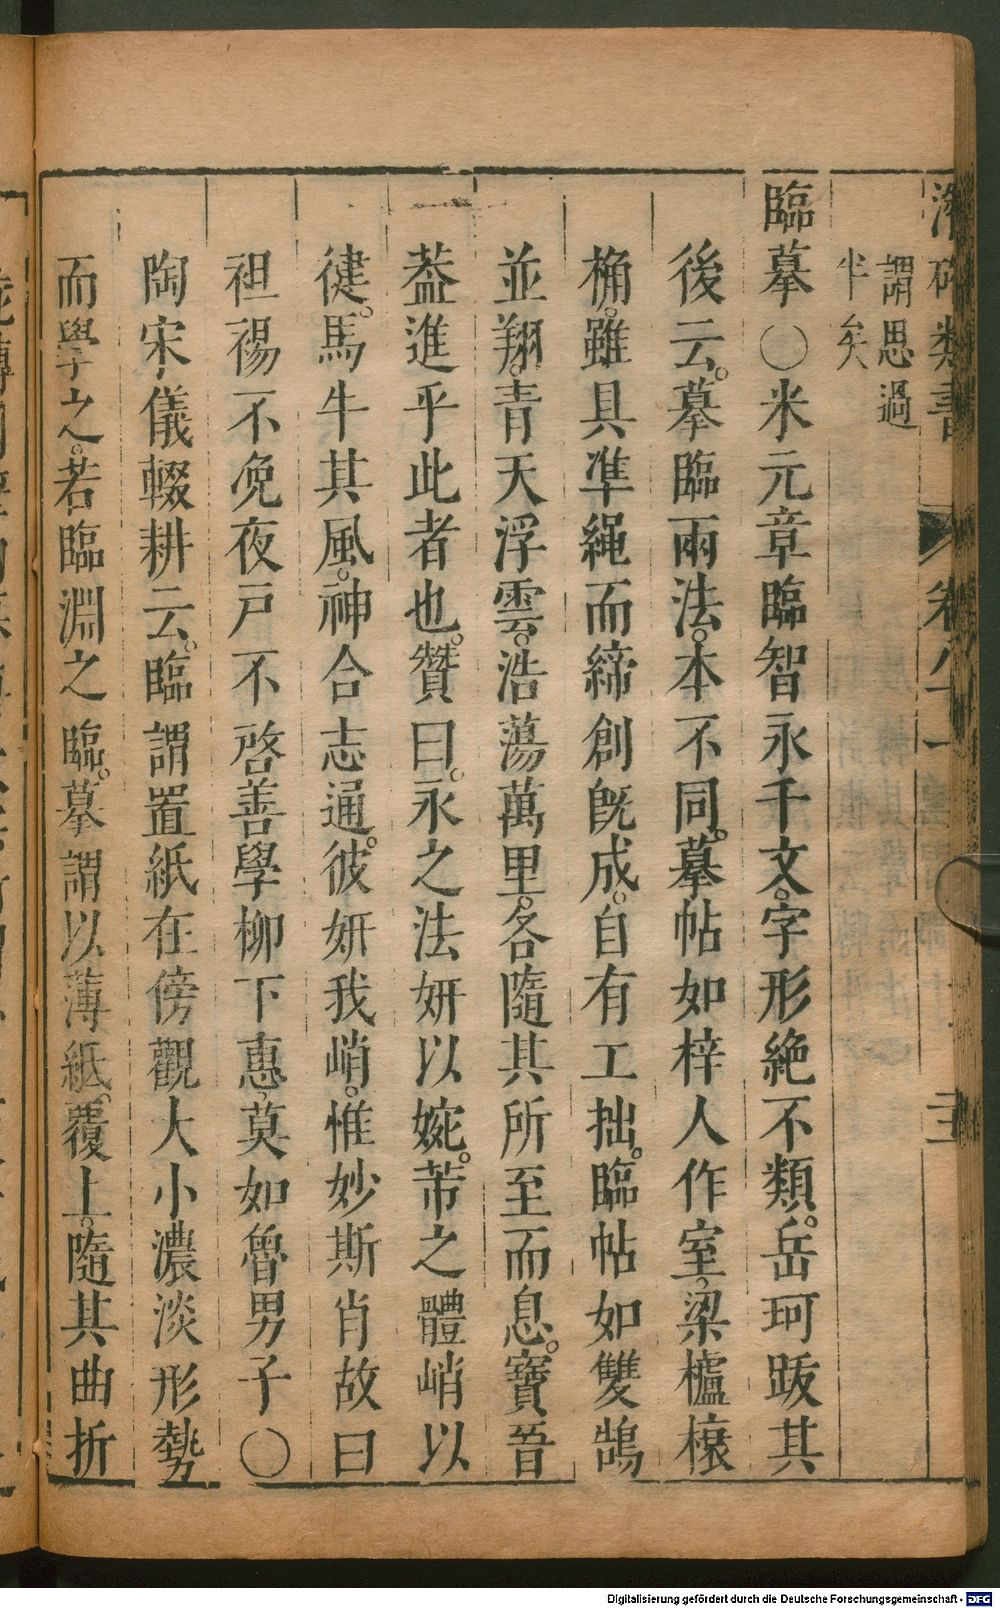 潛確類書 卷八十一
謂思過
半矣
臨摹〇米元章臨智永千文。字形絶不類。岳珂跋其
後云。摹臨兩法。本不同。摹帖如梓人作室。梁櫨榱
桷。雖具準繩而締創旣成。自有工拙。臨帖如雙鵠
並翔。青天浮雲。浩蕩萬里。各隨其所至而息。寶晉
葢進乎此者也。贊曰。永之法姸以婉。芾之體峭以
健。馬牛其風。神合志通。彼姸我峭。惟妙斯肖故曰
袒裼不免夜戸不啓善學柳下惠。莫如魯男子〇
陶宋儀輟耕云。臨謂置紙在傍觀大小濃淡形勢
而學之。若臨淵之臨。摹謂以薄紙。覆上。隨其曲折
Digitalisierung gefördert durch die Deutsche Forschungsgemeinschaft - DFG